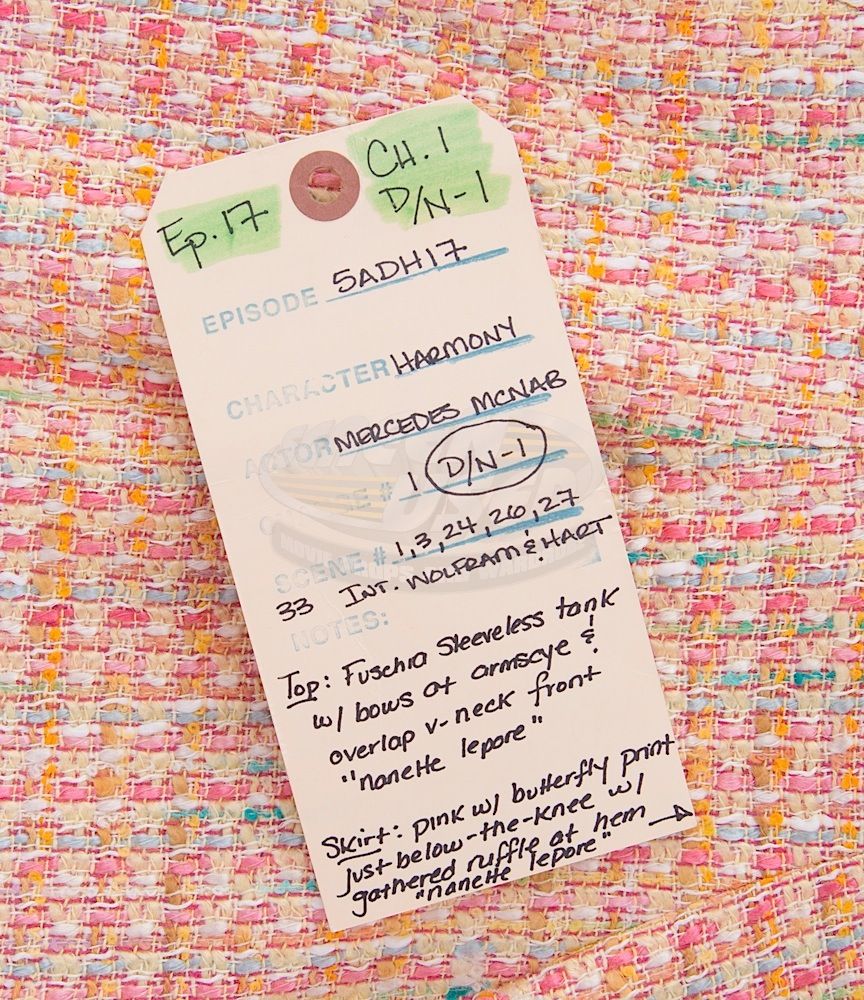 Ep. 17
CH. 1
D/N-1
EPISODE 5ADH17
CHARACTER HARMONY
ACTOR MERCEDES MCNAB
# 1 D/N-1
SCENE # 1, 3, 24, 26, 27
33 INT. WOLFRAM & HART
NOTES:
Top: Fuschia Sleeveless tank
w/ bows at armscye &
overlap v-neck front
"nanette lepore"
Skirt: pink w/ butterfly print
just-below-the-knee w/
gathered ruffle at hem →
"nanette lepore"